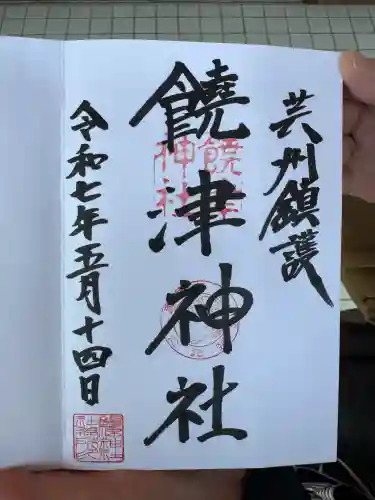 芸州鎮護
饒津神社
令和七年五月十四日